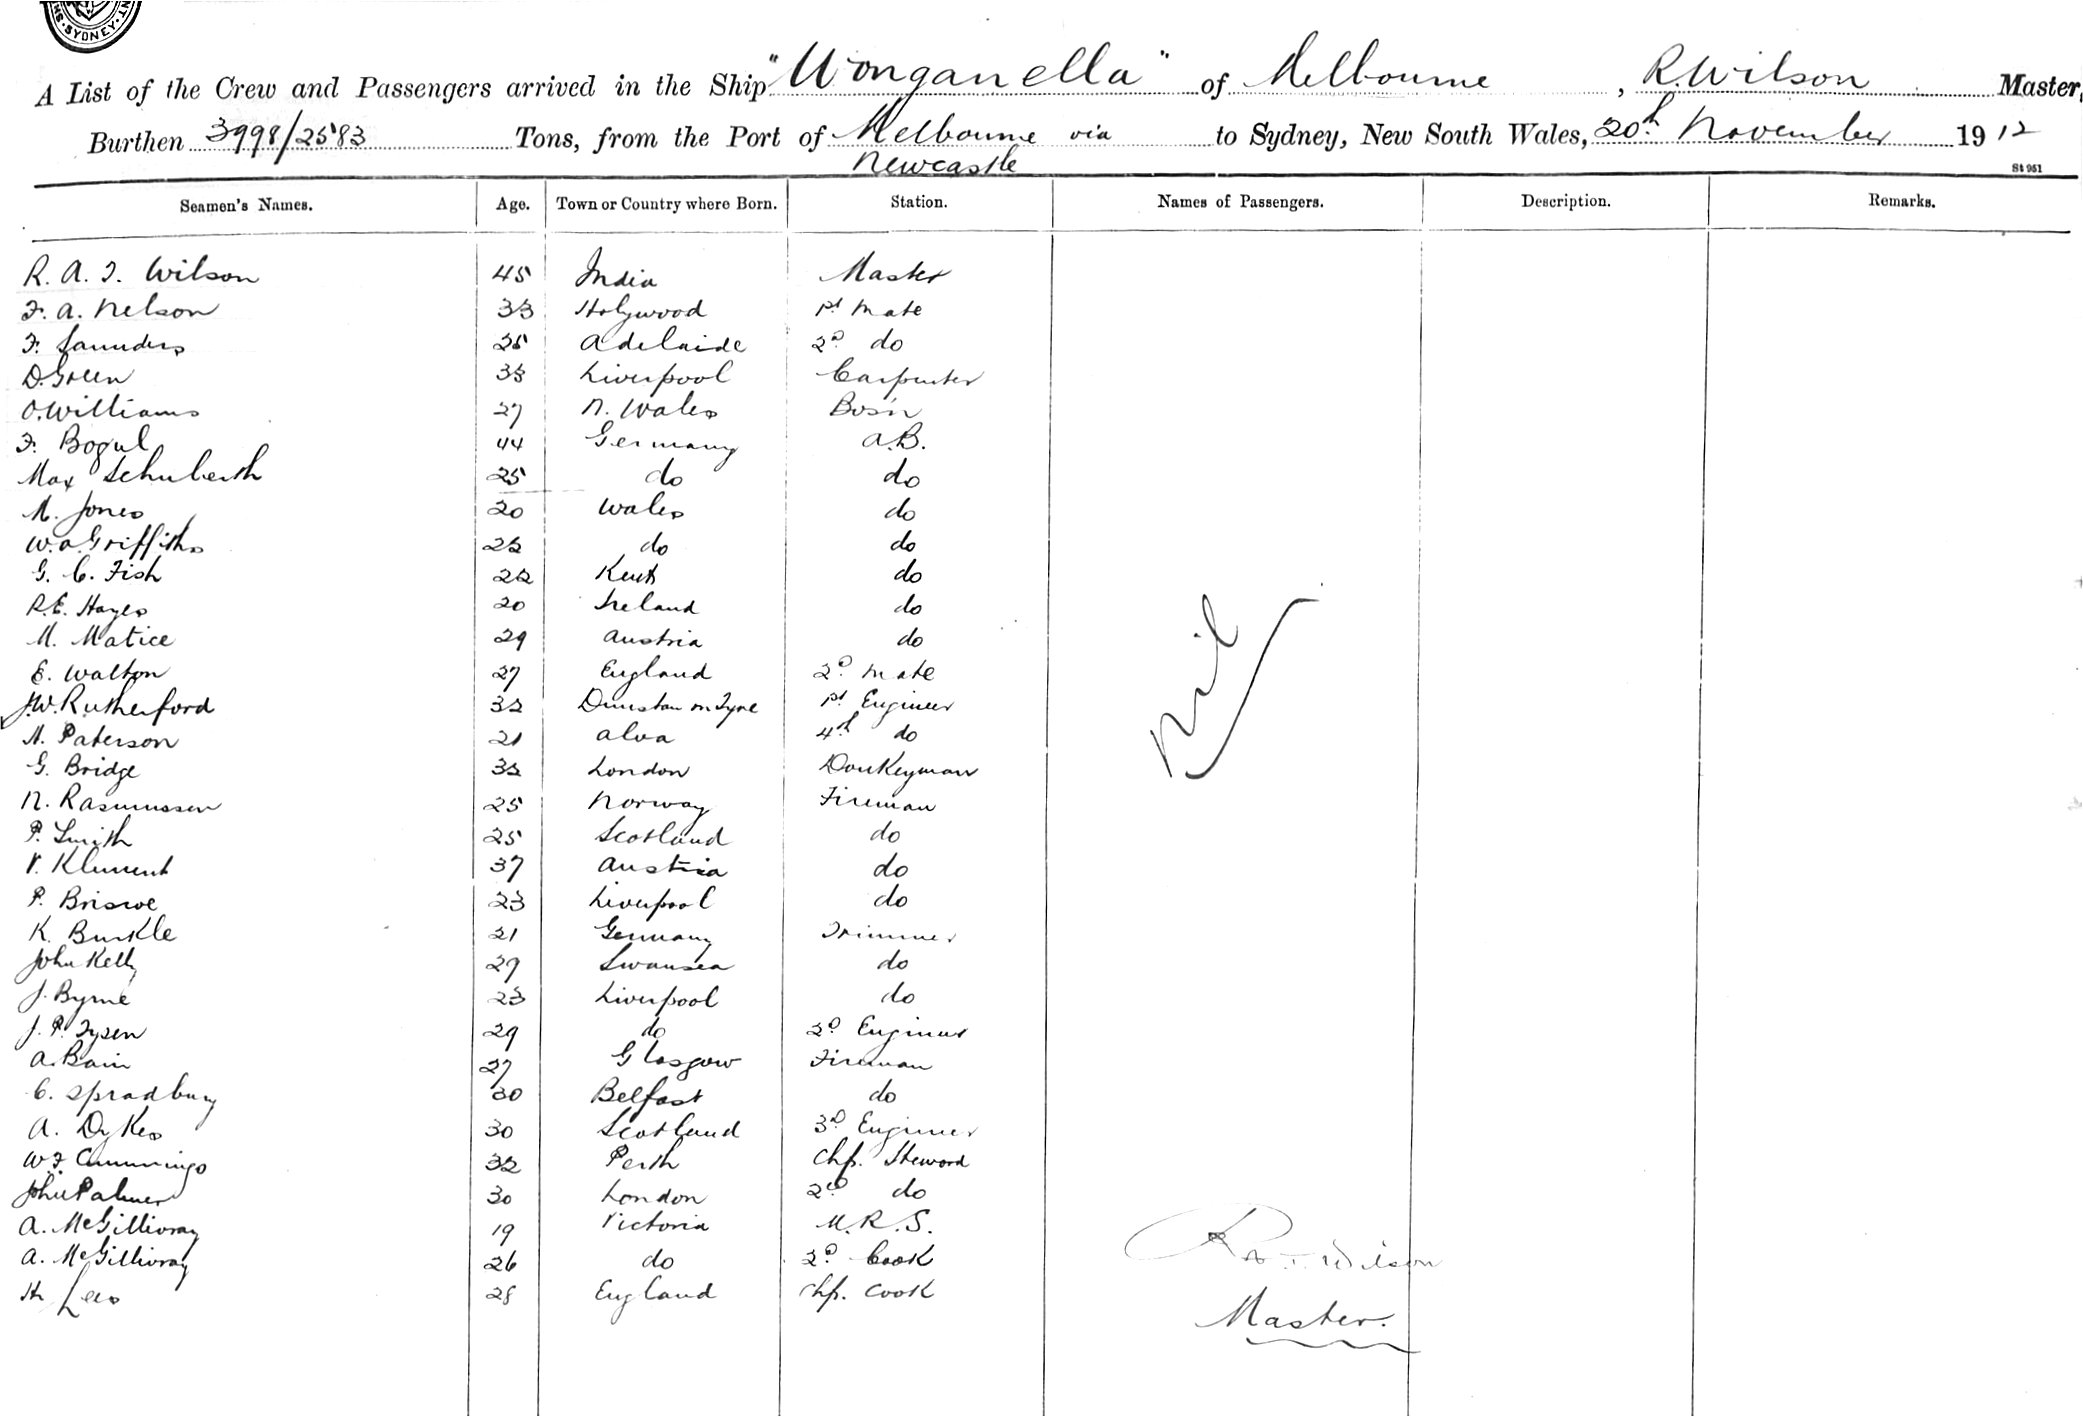 SYDNEY
A List of the Crew and Passengers arrived in the Ship "Wonganella" of Melbourne, R. Wilson Master,
Burthen 3998/2583 Tons, from the Port of Melbourne via Newcastle to Sydney, New South Wales, 20th November 1912
St 951
Seamen's Names. Age. Town or Country where Born. Station. Names of Passengers. Description. Remarks.
R. A. F. Wilson 45 India Master
F. A. Nelson 33 Holywood 1st Mate
F. Saunders 25 Adelaide 2d do
D. Green 33 Liverpool Carpenter
O. Williams 27 N. Wales Bos'n
F. Bogul 44 Germany A.B.
Max Schuberth 25 do do
M. Jones 20 Wales do
W. O. Griffiths 22 do do
G. C. Fish 22 Kent do
R. E. Hayes 20 Ireland do
M. Matice 29 Austria do
E. Walton 27 England 2d Mate
J. W. Rutherford 32 Dunston on Tyne 1st Engineer
A. Paterson 21 Alva 4th do
G. Bridge 32 London Donkeyman
N. Rasmussen 25 Norway Fireman
P. Smith 25 Scotland do
V. Klement 37 Austria do
P. Briscoe 23 Liverpool do
K. Burkle 21 Germany Trimmer
John Kelly 29 Swansea do
J. Byrne 23 Liverpool do
J. P. Tysen 29 do 2d Engineer
A. Bain 27 Glasgow Fireman
C. Spradbury 30 Belfast do
A. Dykes 30 Scotland 3d Engineer
W. F. Cummings 32 Perth Chf. Steward
John Palmer 30 London 2nd do
A. McGillivray 19 Victoria M.R.S.
A. McGillivray 26 do 2d Cook
H. Lees 28 England Chf. Cook
Nil
Wilson
Master.